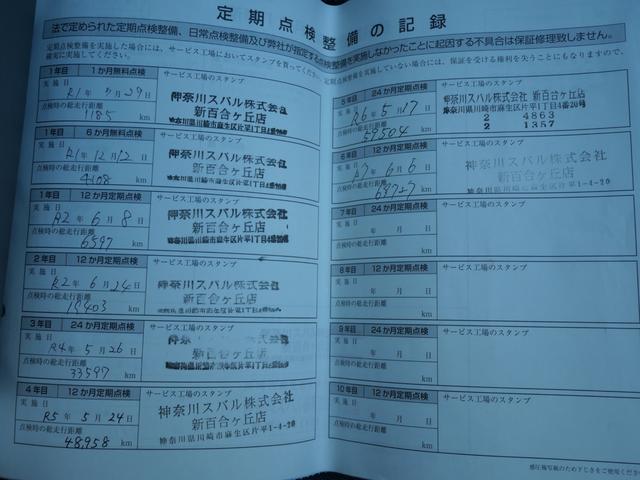 定期点検整備の記録
法で定められた定期点検整備、日常点検整備及び弊社が指定する点検整備を実施しなかったことに起因する不具合は保証修理致しません。
定期点検整備を実施した場合には、サービス工場においてスタンプを貰ってください。定期点検整備を実施していない場合には、保証を受ける権利を失うこともありますので、
確実に実施してください。
1年目 1か月無料点検 サービス工場のスタンプ
実施日
R1年 7月29日
点検時の総走行距離
1185 km
神奈川スバル株式会社
新百合ヶ丘店
神奈川県川崎市麻生区片平1丁目4番20号
1年目 6か月無料点検 サービス工場のスタンプ
実施日
R1年12月12日
点検時の総走行距離
4108 km
神奈川スバル株式会社
新百合ヶ丘店
神奈川県川崎市麻生区片平1丁目4番20号
1年目 12か月定期点検 サービス工場のスタンプ
実施日
R2年 6月 8日
点検時の総走行距離
6597 km
神奈川スバル株式会社
新百合ヶ丘店
神奈川県川崎市麻生区片平1丁目4番20号
2年目 12か月定期点検 サービス工場のスタンプ
実施日
年 6月24日
点検時の総走行距離
km
神奈川スバル株式会社
新百合ヶ丘店
神奈川県川崎市麻生区片平1丁目4番20号
3年目 24か月定期点検 サービス工場のスタンプ
実施日
R4年 5月26日
点検時の総走行距離
33597 km
神奈川スバル株式会社
新百合ヶ丘店
4年目 12か月定期点検 サービス工場のスタンプ
実施日
R5年 5月24日
点検時の総走行距離
48,958 km
神奈川スバル株式会社
新百合ヶ丘店
神奈川県川崎市麻生区片平1-4-20
5年目 24か月定期点検 サービス工場のスタンプ
実施日
R6年 5月17日
点検時の総走行距離
57504 km
神奈川スバル株式会社 新百合ヶ丘店
神奈川県川崎市麻生区片平1丁目4番20号
2 4863
2 1357
6年目 12か月定期点検 サービス工場のスタンプ
実施日
R7年 6月 6日
点検時の総走行距離
63727 km
神奈川スバル株式会社
新百合ヶ丘店
神奈川県川崎市麻生区片平1-4-20
7年目 24か月定期点検 サービス工場のスタンプ
実施日
年 月 日
点検時の総走行距離
km
8年目 12か月定期点検 サービス工場のスタンプ
実施日
年 月 日
点検時の総走行距離
km
9年目 24か月定期点検 サービス工場のスタンプ
実施日
年 月 日
点検時の総走行距離
km
10年目 12か月定期点検 サービス工場のスタンプ
実施日
年 月 日
点検時の総走行距離
km
感圧複写紙のため下じきをご使用ください